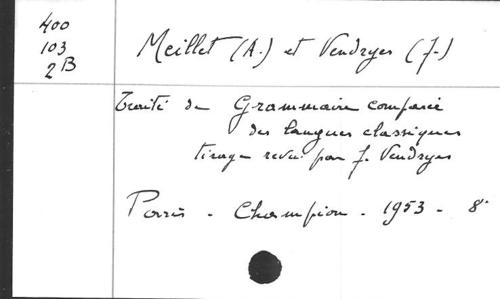 400
103
2B
Meillet (A.) et Vendryes (J.)
Traité de Grammaire comparée
des langues classiques
tirage revu par J. Vendryes
Paris - Champion - 1953 - 8°